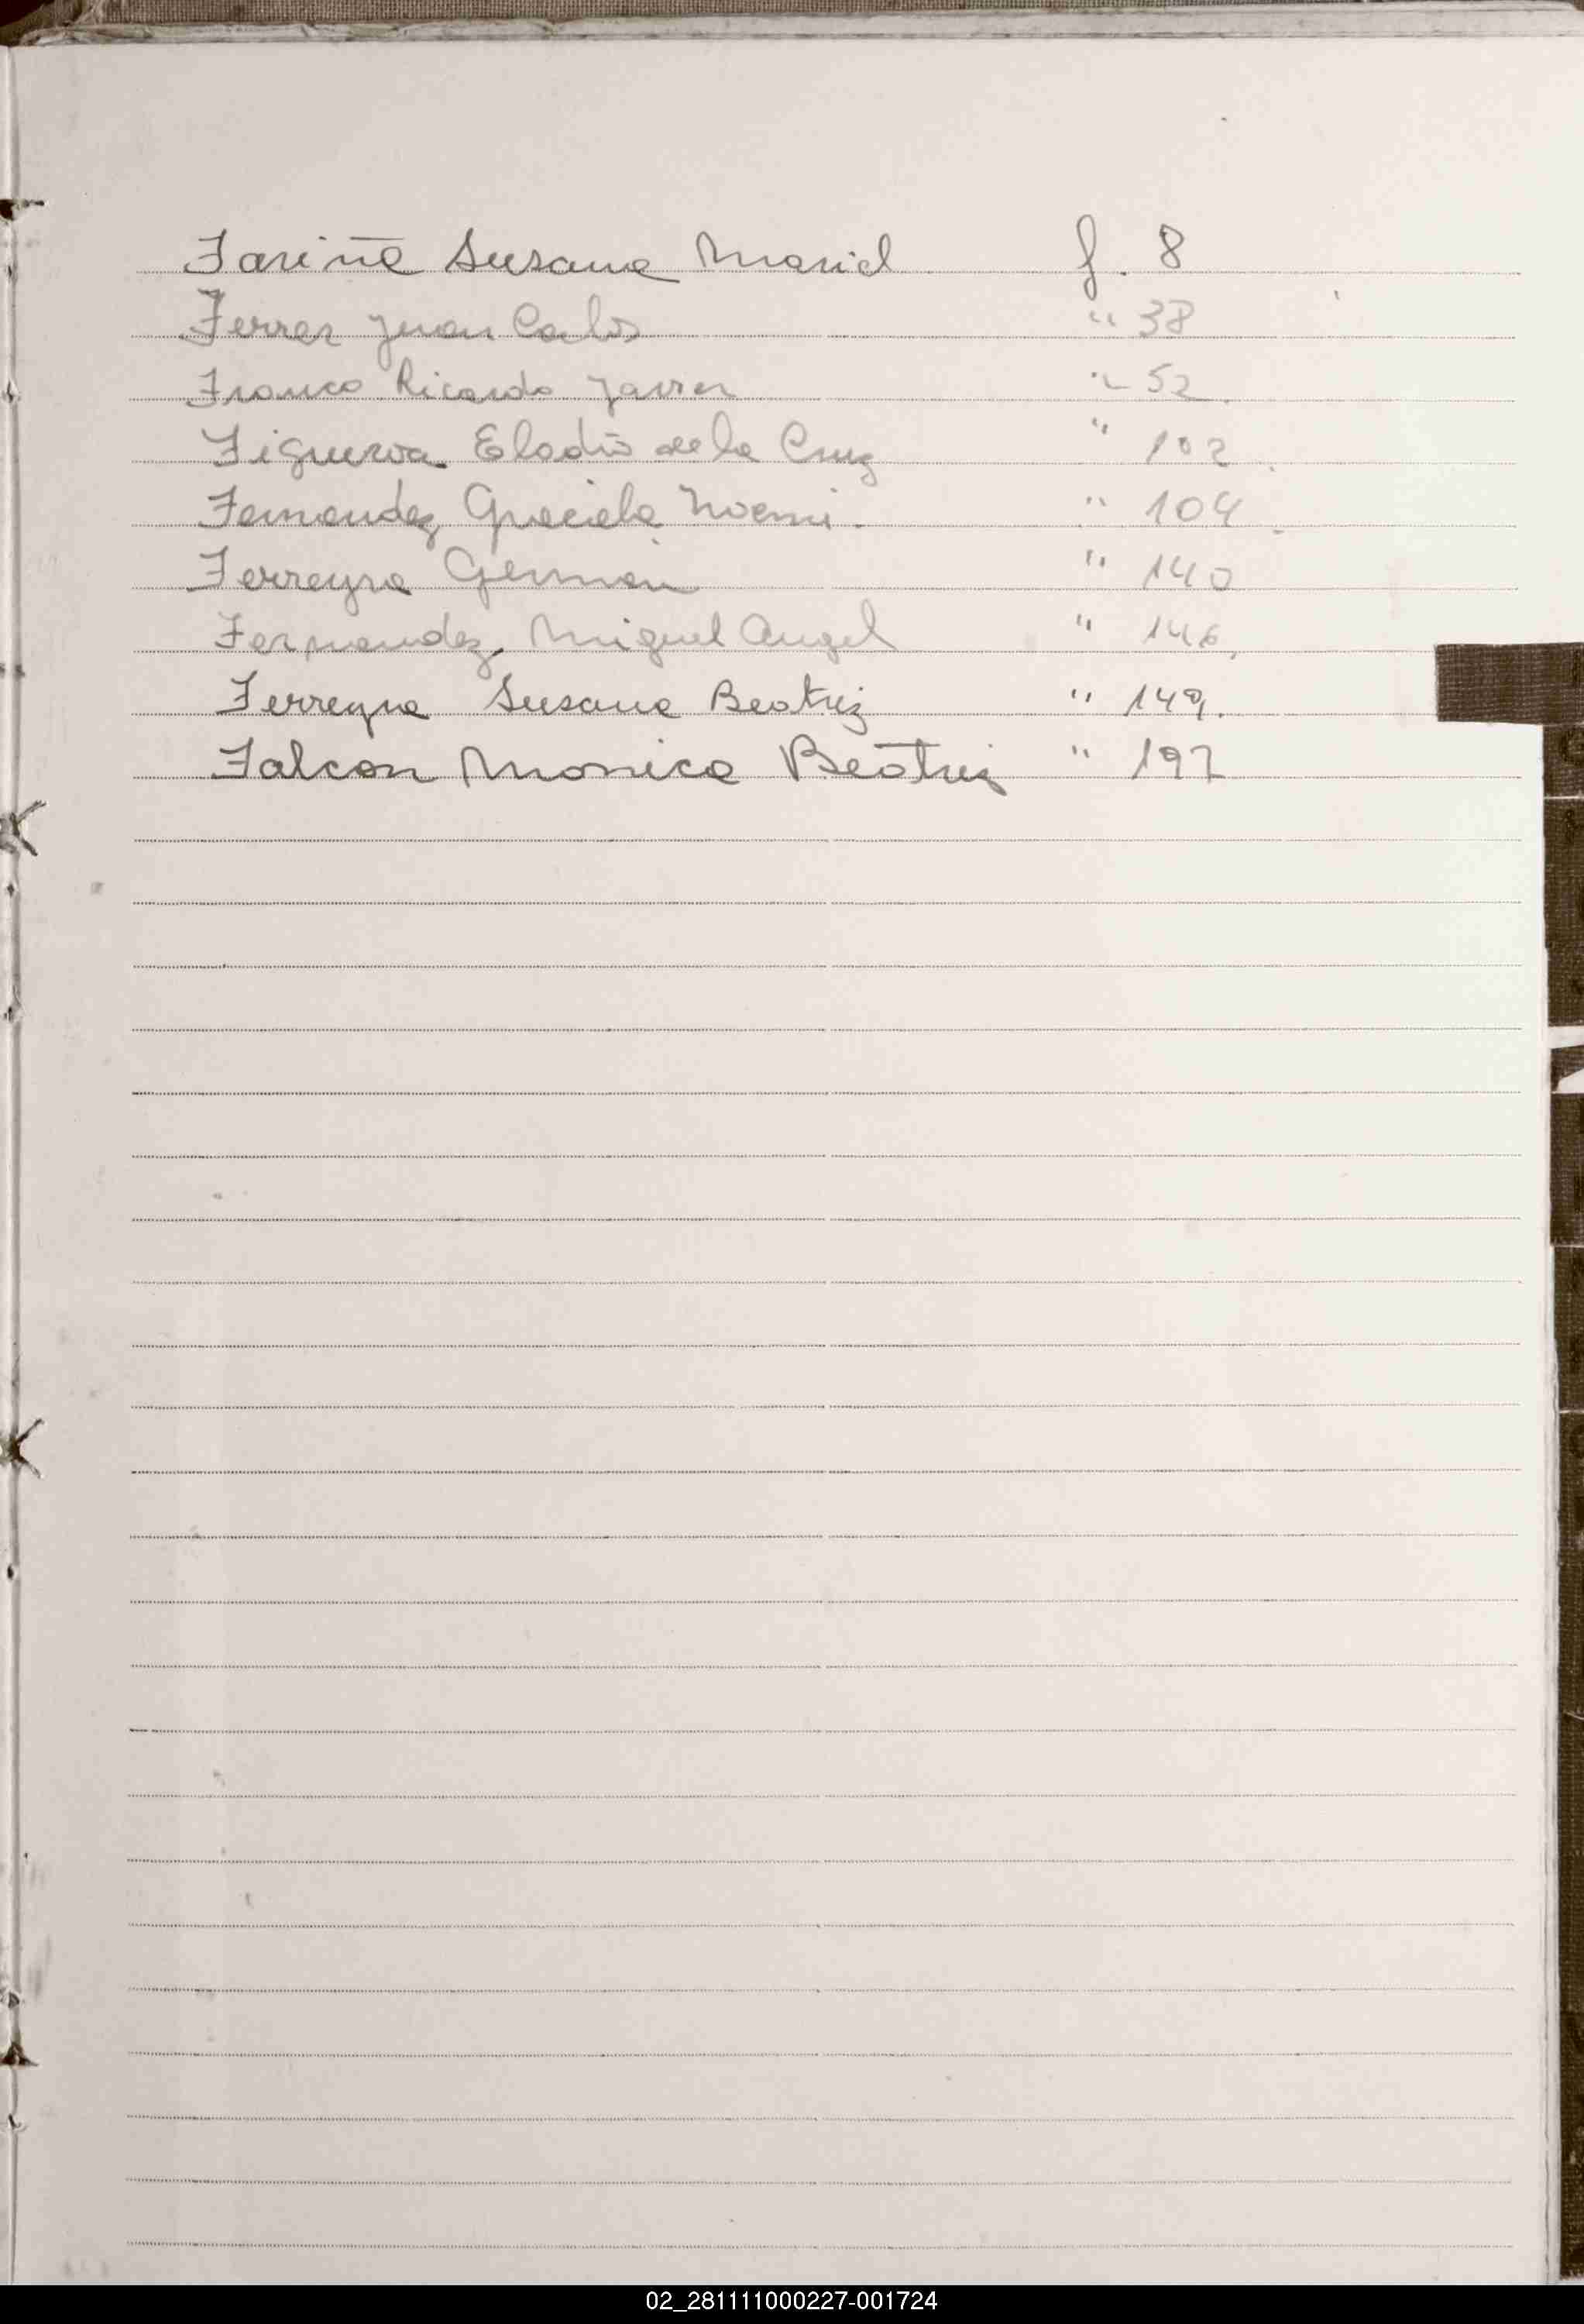 Fariña Susana Mariel f. 8
Ferrer Juan Carlos " 38
Franco Ricardo Javier " 52
Figueroa Eladio de la Cruz " 102
Fernandez Graciela Noemi. " 104
Ferreyra German " 140
Fernandez, Miguel Angel " 146
Ferreyra Susana Beatriz " 149.
Falcon Monica Beatriz " 197
02_281111000227-001724